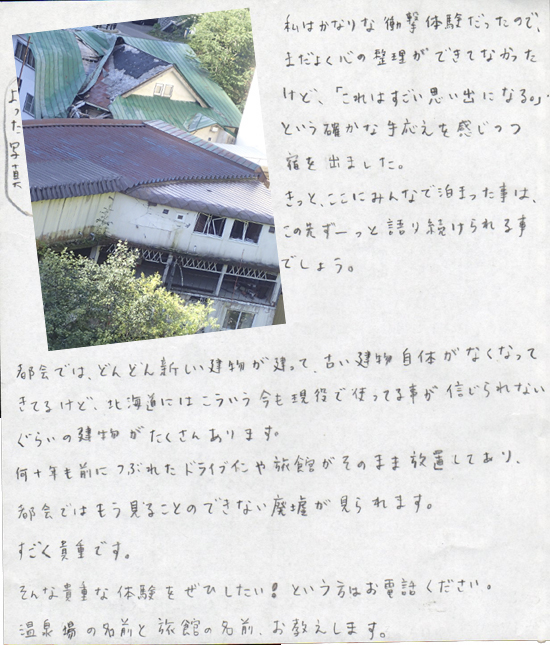 私はかなりな衝撃体験だったので、
まだよく心の整理ができてなかった
けど、「これはすごい思い出になる。」
という確かな手応えを感じつつ
宿を出ました。
きっと、ここにみんなで泊まった事は、
この先ずーっと語り続けられる事
でしょう。
よった写真
都会では、どんどん新しい建物が建って、古い建物自体がなくなって
きてるけど、北海道にはこういう今も現役で使ってる事が信じられない
ぐらいの建物がたくさんあります。
何十年も前につぶれたドライブインや旅館がそのまま放置してあり、
都会ではもう見ることのできない廃墟が見られます。
すごく貴重です。
そんな貴重な体験をぜひしたい!という方はお電話ください。
温泉場の名前と旅館の名前、お教えします。